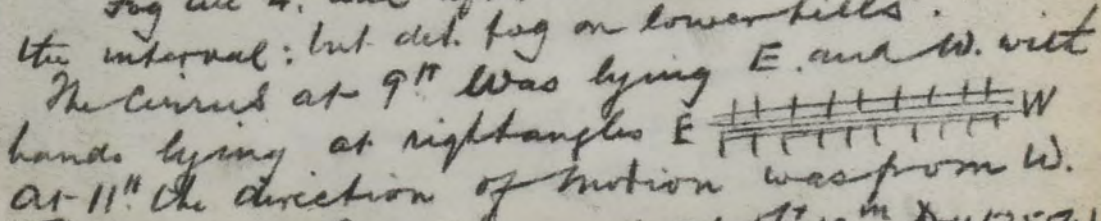 Fog till 4. and
the interval: but det. fog on lower hills.
The Cirrus at 9ʰ was lying E. and W. with
bands lying at rightangles E W
At 11ʰ the direction of motion was from W.